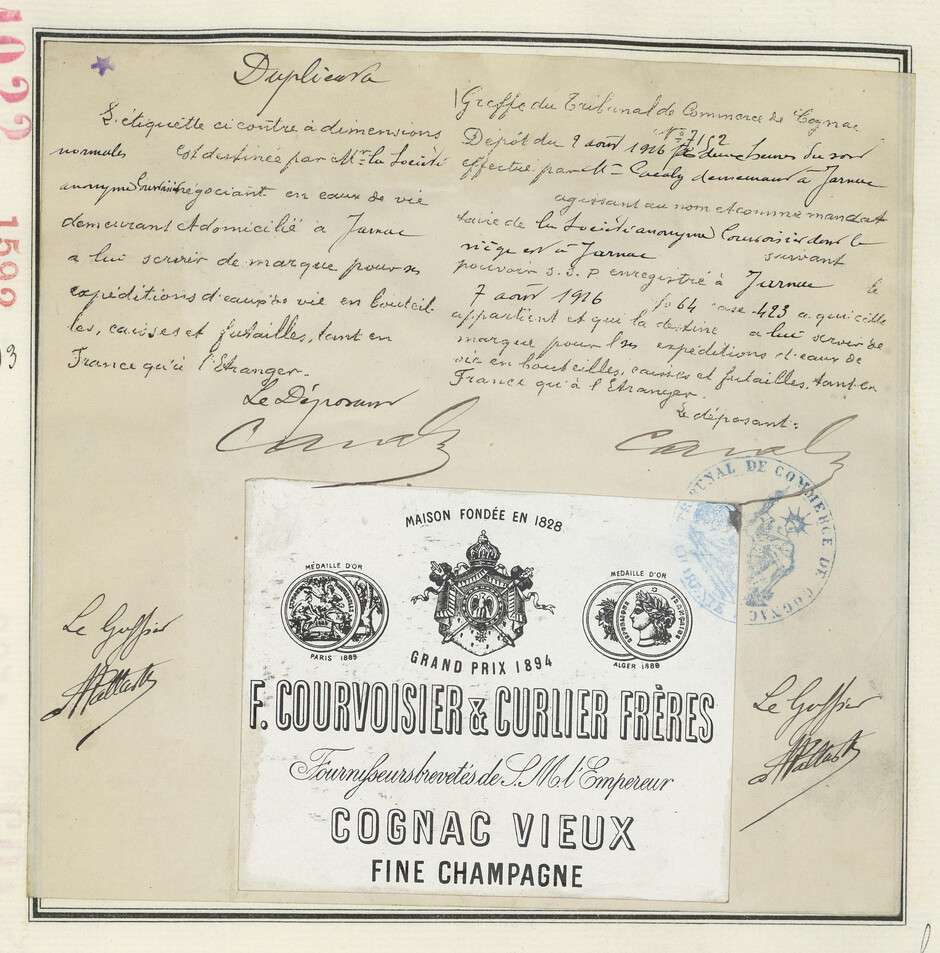 Duplicata
L'étiquette ci contre à dimensions
normales Est destinée par Mr la Société
anonyme Courvoisier négociant en eaux de vie
demeurant et domicilié à Jarnac
a lui servir de marque pour ses
expéditions d'eaux de vie en bouteil-
les, caisses et futailles, tant en
France qu'à l'Etranger.
Le Déposant
Greffe du Tribunal de Commerce de Cognac
No 7152
Dépôt du 9 août 1926 à deux heures du soir
effectué par Mr demeurant à Jarnac
agissant au nom et comme mandat
taire de la Société anonyme Courvoisier dont le
siège est à Jarnac suivant
pouvoir s.s.p enregistré à Jarnac le
7 août 1926 fo 64 case 423 a qui elle
appartient et qui la destine a lui servir de
marque pour ses expéditions d'eaux de
vie en bouteilles, caisses et futailles, tant en
France qu'à l'Etranger.
Le déposant:
TRIBUNAL DE COMMERCE DE COGNAC
MAISON FONDÉE EN 1828
MÉDAILLE D'OR
PARIS 1889
GRAND PRIX 1894
MEDAILLE D'OR
ALGER 1880
F. COURVOISIER & CURLIER FRÈRES
Fournisseurs brevetés de S. M. l'Empereur
COGNAC VIEUX
FINE CHAMPAGNE
Le Greffier
Le Greffier
1022
1592